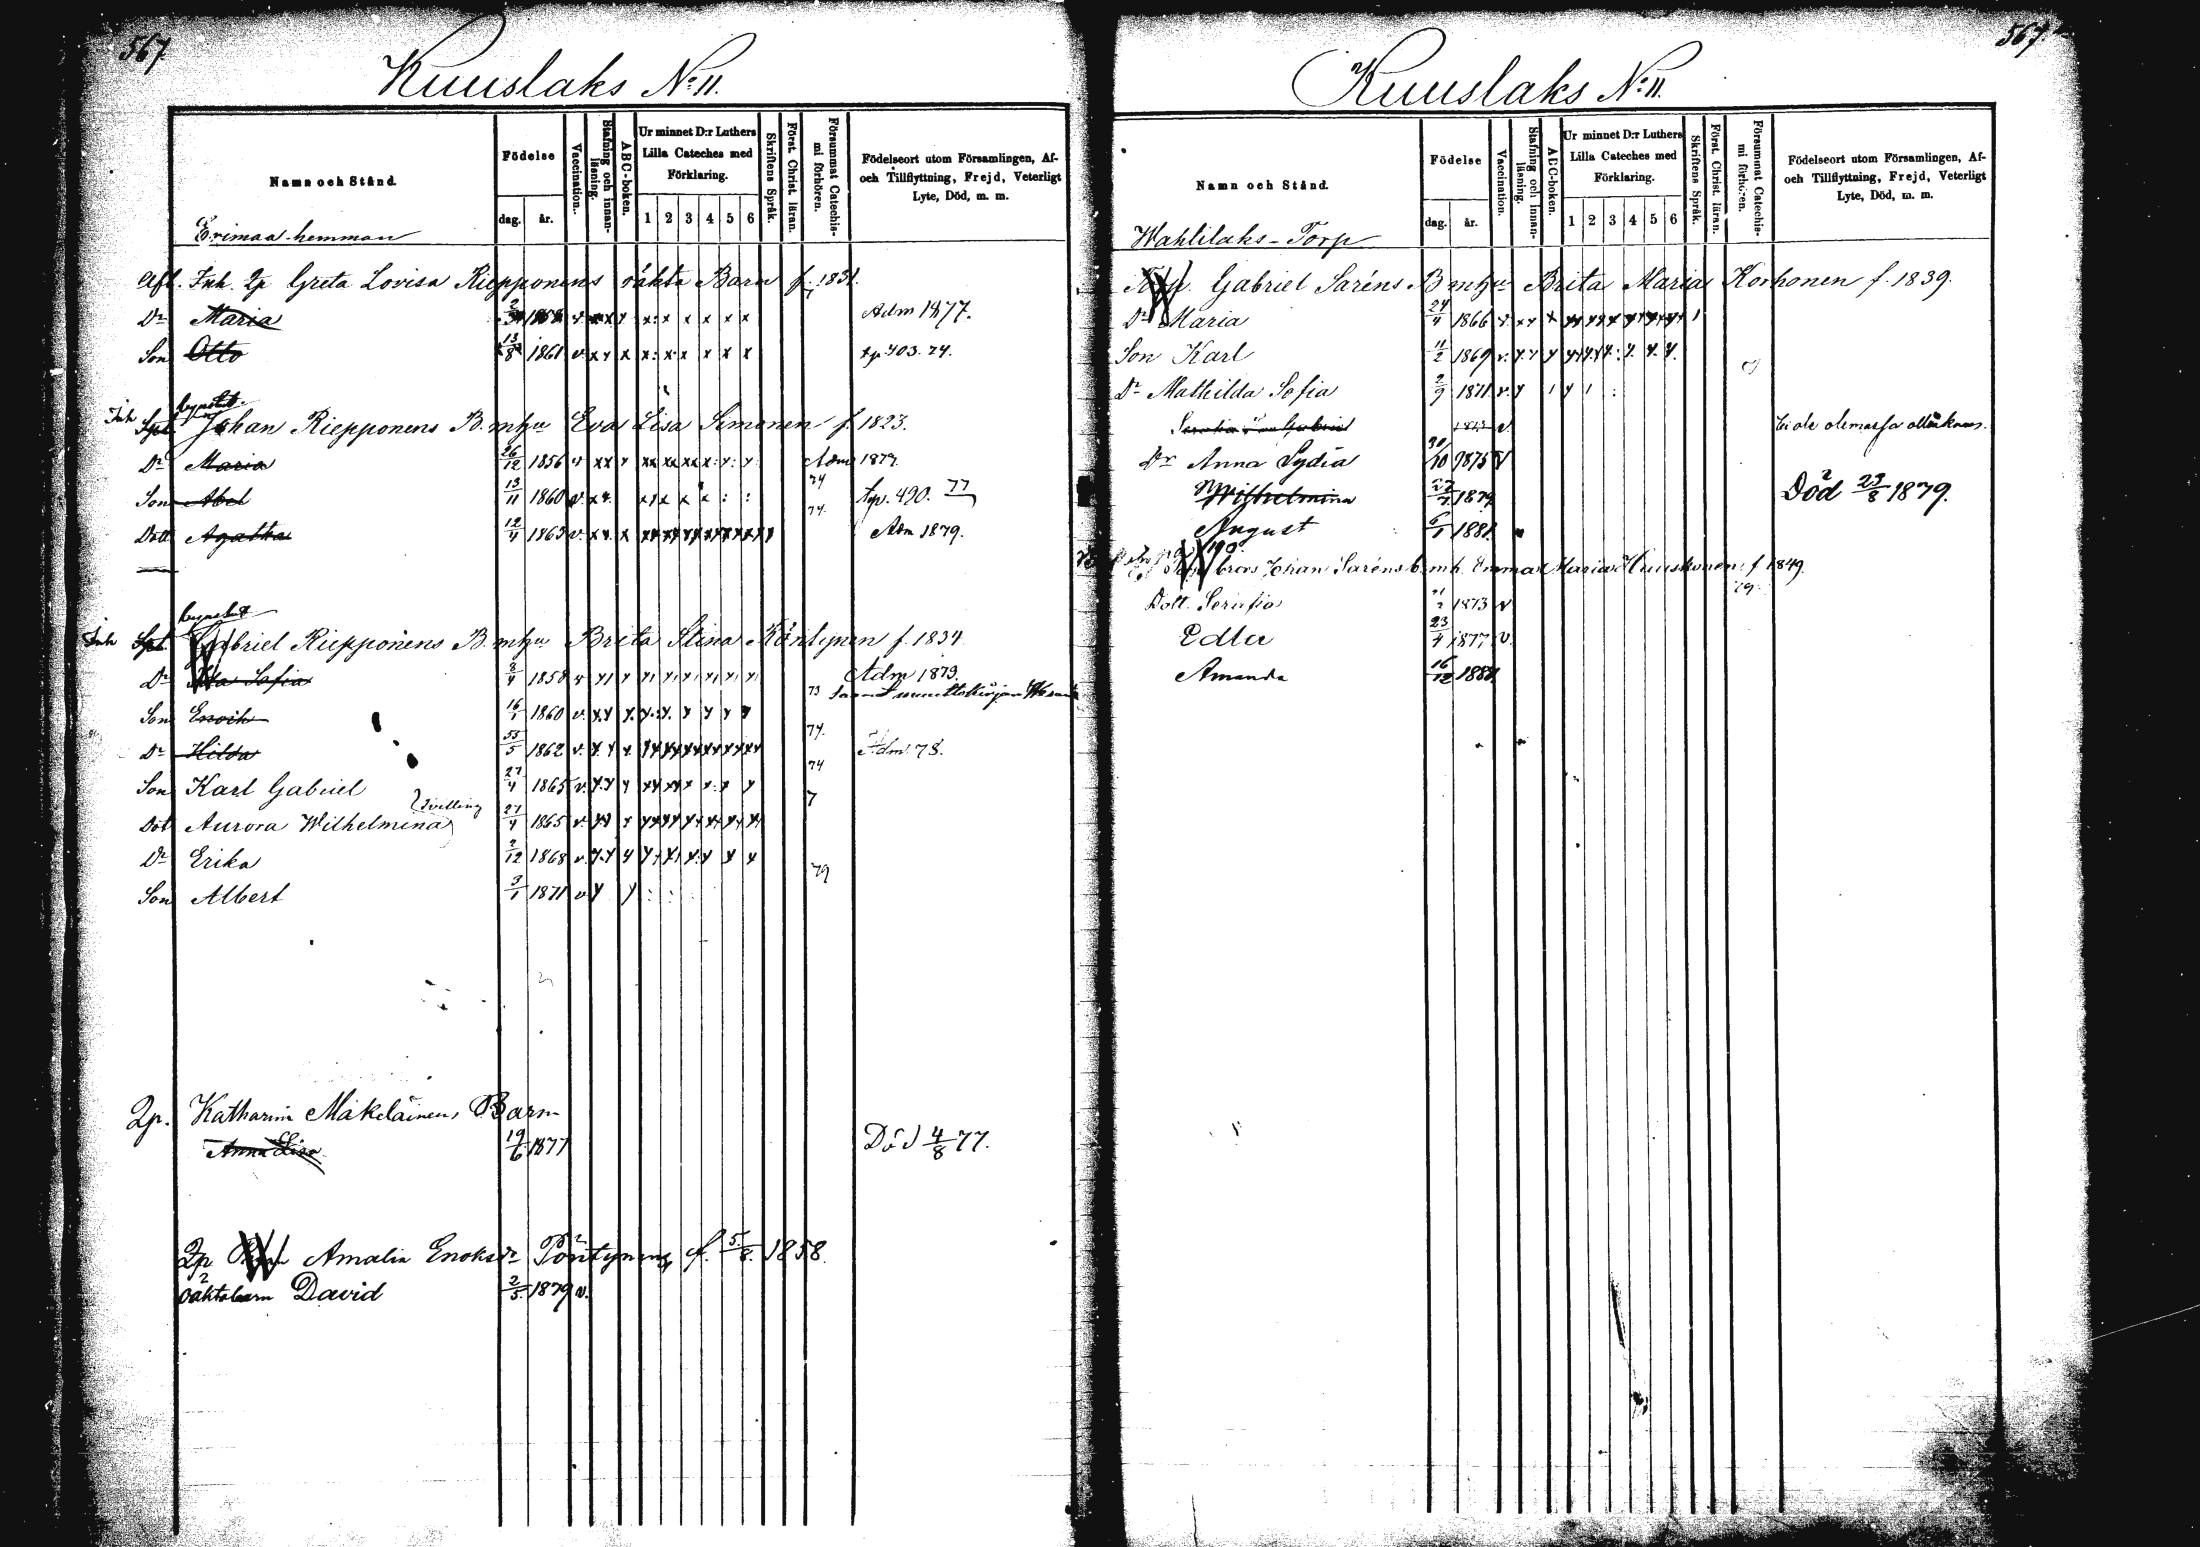 567.
Kuuslaks No: 11.
Namn och Stånd.
Födelse
dag. år.
Vaccination.
Stafning och innanläsning.
ABC-boken.
Ur minnet D:r Luthers Lilla Cateches med Förklaring.
1 2 3 4 5 6
Skriftens Språk.
Först. Christ. läran.
Försummat Catechismi förhören.
Födelseort utom Församlingen, Af- och Tillflyttning, Frejd, Veterligt Lyte, Död, m. m.
Erimaa hemman
Afl. Inh. Qp Greta Lovisa Riepponens oäkta Barn f. 1831.
Dr Maria Adm 1877.
Son Otto 13/8 1861 v. xp 403. 74.
Inh Johan Riepponens B. m hu Eva Lisa Simonen f. 1823.
Dr Maria 26/12 1856 v Adm 1877.
Son Abel 13/11 1860 v. 74 xp. 490. 77
Dott Agatha 12/4 1863 v. 74. Adm 1879.
Inh Gabriel Riepponens B. m hu Brita Stina Köntynen f. 1834
Dr Sofia 8/4 1858 v Adm 1873.
Son Enoch 16/1 1860 v. 73
Dr Hilda 1862 v. 74. Adm 78.
Son Karl Gabriel 27/4 1865 v. 74
Dot Aurora Wilhelmina tvilling 27/4 1865 v. 7
Dr Erika 2/12 1868 v.
Son Albert 3/1 1871 v 79
Qp. Katharin Makeläinens Barn
Anna Lisa 19/6 1877 Död 4/8 77.
Qp Amalia Enoksdr Pöntynens f. 5/8. 1858.
oäktabarn David 2/5. 1879 v.
567.
Kuuslaks No: 11.
Namn och Stånd.
Födelse
dag. år.
Vaccination.
Stafning och innanläsning.
ABC-boken.
Ur minnet D:r Luthers Lilla Cateches med Förklaring.
1 2 3 4 5 6
Skriftens Språk.
Först. Christ. läran.
Försummat Catechismi förhören.
Födelseort utom Församlingen, Af- och Tillflyttning, Frejd, Veterligt Lyte, Död, m. m.
Wahlilaks-Torp
Gabriel Saréns B m hu Brita Maria Korhonen f. 1839.
Dr Maria 24/4 1866 v.
Son Karl 11/2 1869 v.
Dr Mathilda Sofia 2/9 1871 v.
Ei ole olemassa
Dr Anna Lydia 30/10 1875 v
Wilhelmina 1879 Död 23/8 1879.
August 6/1 1881
Johan Saréns b. m h. Emma Maria Huuskonen f 1849.
79.
Dott. Serafia 1873 v
Edla 23/4 1877 v.
Amanda 16/12 1880.